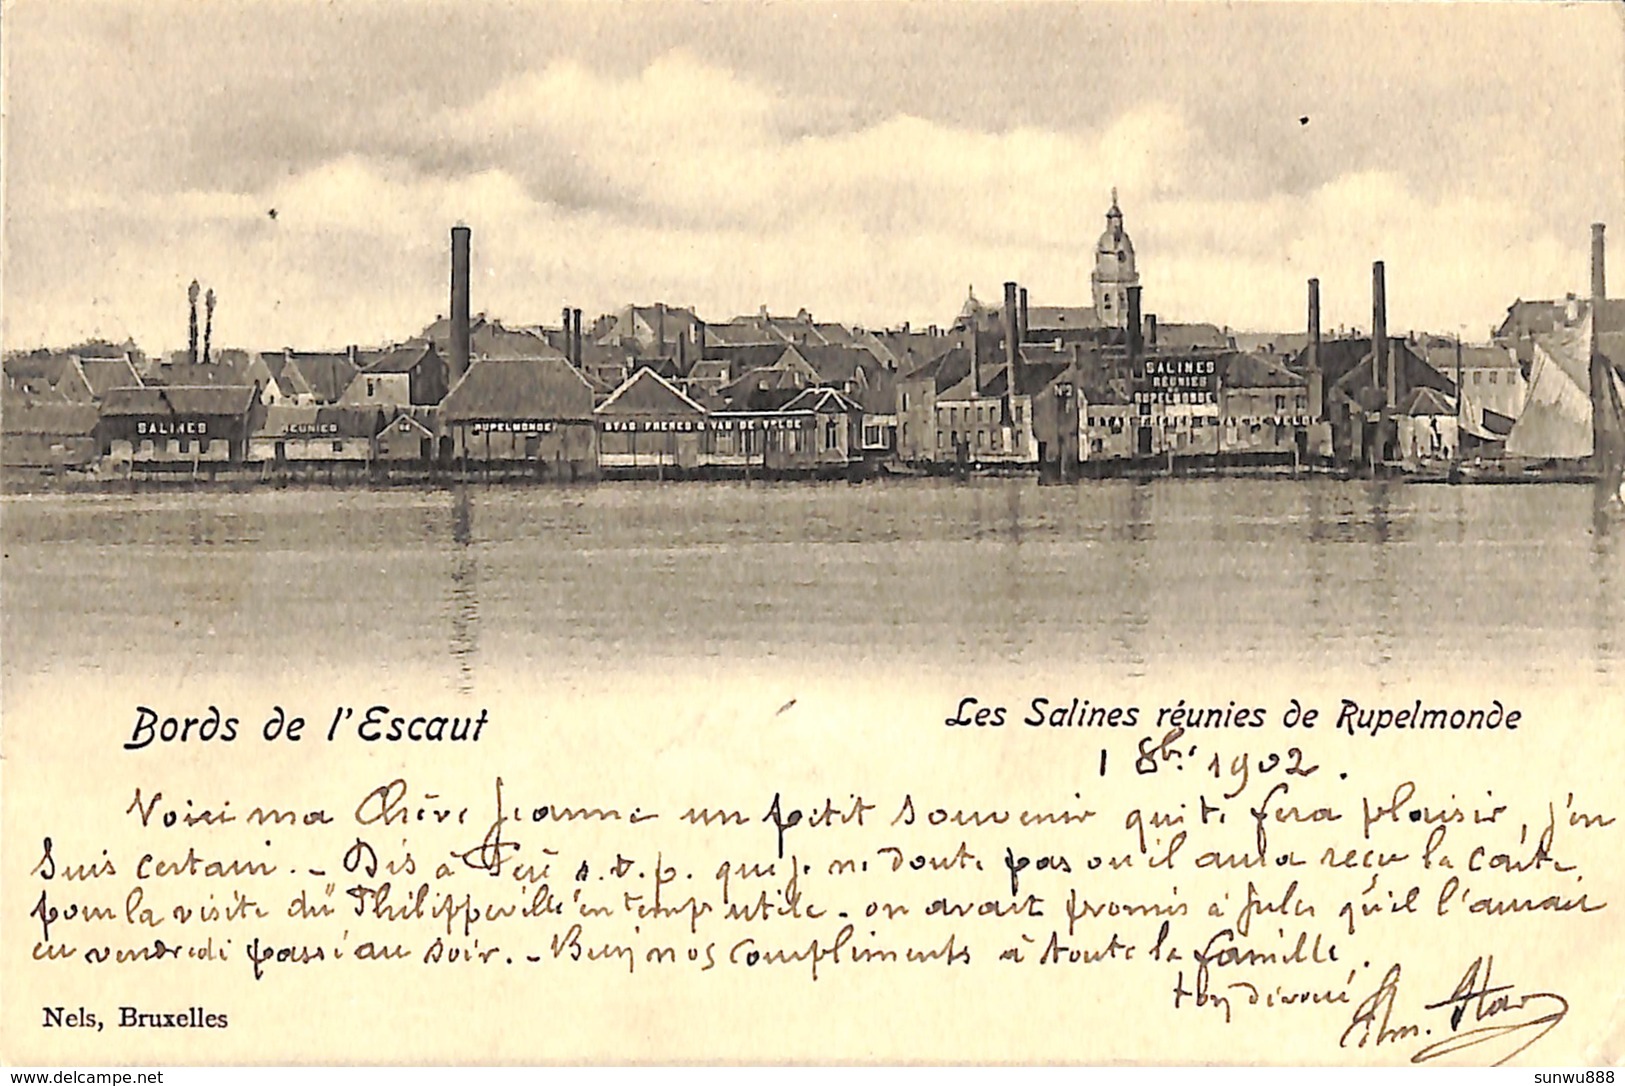 SALINES
REUNIES
DE
RUPELMONDE
STAS FRERES & VAN DE VELDE
No 2
SALINES
RÉUNIES
DE
RUPELMONDE
STAS FRERES & VAN DE VELDE
Bords de l'Escaut
Les Salines réunies de Rupelmonde
1 8bre 1902.
Voici ma Chère Jeanne un petit souvenir qui te fera plaisir, j'en
suis certain. - Dis à Père s.v.p. que je ne doute pas ou il aura reçu la carte
pour la visite du "Philippeville" en temps utile - on avait promis à Jules qu'il l'aurait
eu vendredi passé au soir. - Bien nos compliments à toute la famille,
ton dévoué
Nels, Bruxelles
sunwu888